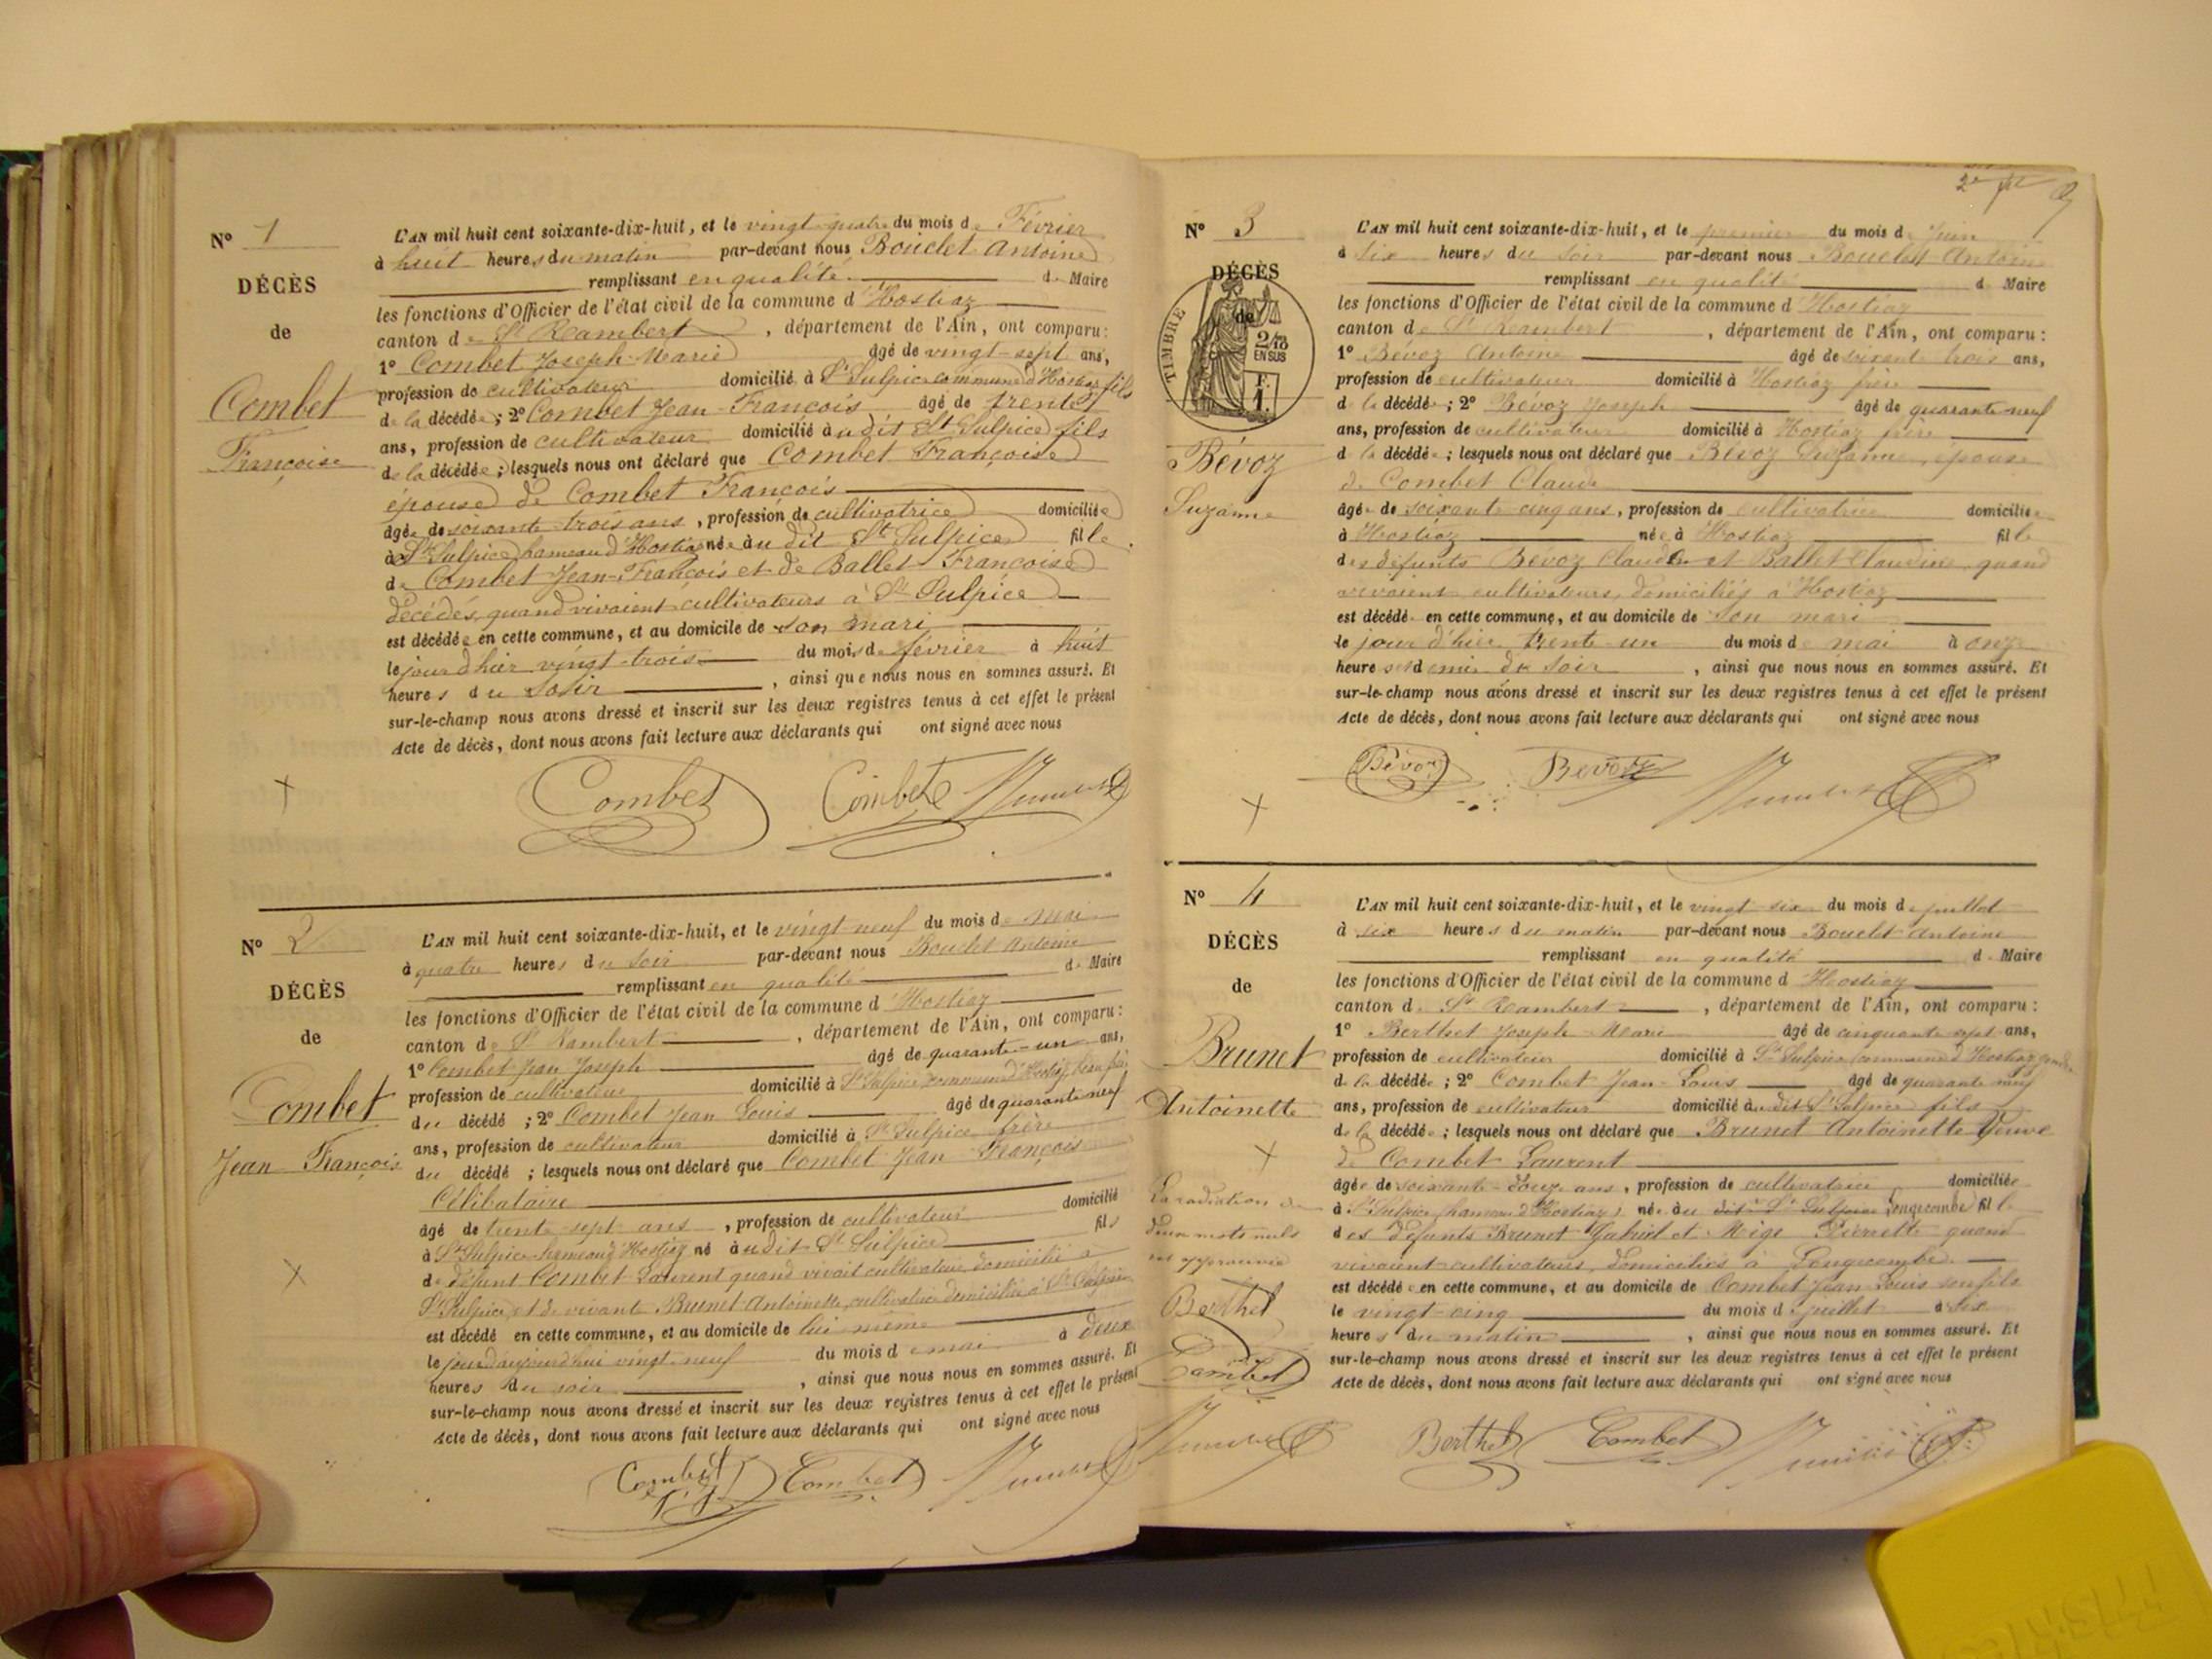 N° 1
DÉCÈS
de
Combet
Françoise
L'AN mil huit cent soixante-dix-huit, et le vingt-quatre du mois de Février
à huit heures du matin par-devant nous Bouclet Antoine
remplissant en qualité de Maire
les fonctions d'Officier de l'état civil de la commune d'Hostiaz
canton de St Rambert, département de l'Ain, ont comparu:
1° Combet Joseph-Marie âgé de vingt-sept ans,
profession de cultivateur domicilié à St Sulpice commune d'Hostiaz fils
de la décédée; 2° Combet Jean-François âgé de trente
ans, profession de cultivateur domicilié à udit St Sulpice fils
de la décédée; lesquels nous ont déclaré que Combet Françoise
épouse de Combet François
âgée de soixante trois ans, profession de cultivatrice domiciliée
à St Sulpice hameau d'Hostiaz née àu dit St Sulpice fille
de Combet Jean-François et de Ballet Françoise
décédés, quand vivaient cultivateurs à St Sulpice
est décédée en cette commune, et au domicile de son mari
le jour d'hier vingt-trois du mois de février à huit
heures du soir, ainsi que nous nous en sommes assuré. Et
sur-le-champ nous avons dressé et inscrit sur les deux registres tenus à cet effet le présent
Acte de décès, dont nous avons fait lecture aux déclarants qui ont signé avec nous
Combet Combet
N° 2
DÉCÈS
de
Combet
Jean François
L'AN mil huit cent soixante-dix-huit, et le vingt-neuf du mois de mai
à quatre heures du soir par-devant nous Bouclet Antoine
remplissant en qualité de Maire
les fonctions d'Officier de l'état civil de la commune d'Hostiaz
canton de St Rambert, département de l'Ain, ont comparu:
1° Combet Jean Joseph âgé de quarante-un ans,
profession de cultivateur domicilié à St Sulpice commune d'Hostiaz beau frère
du décédé; 2° Combet Jean Louis âgé de quarante neuf
ans, profession de cultivateur domicilié à St Sulpice frère
du décédé; lesquels nous ont déclaré que Combet Jean François
Célibataire
âgé de trente sept ans, profession de cultivateur domicilié
à St Sulpice hameau d'Hostiaz né àudit St Sulpice fils
de défunt Combet Laurent quand vivait cultivateur domicilié à
St Sulpice, et de vivante Brunet Antoinette, cultivatrice domiciliée à St Sulpice
est décédé en cette commune, et au domicile de lui même
le jourd'aujourd'hui vingt-neuf du mois de mai à deux
heures du soir, ainsi que nous nous en sommes assuré. Et
sur-le-champ nous avons dressé et inscrit sur les deux registres tenus à cet effet le présent
Acte de décès, dont nous avons fait lecture aux déclarants qui ont signé avec nous
Combet J J Combet
N° 3
DÉCÈS
de
TIMBRE
2/10
EN SUS
F.
1.
Bévoz
Suzanne
L'AN mil huit cent soixante-dix-huit, et le premier du mois de Juin
à six heures du soir par-devant nous Bouclet Antoine
remplissant en qualité de Maire
les fonctions d'Officier de l'état civil de la commune d'Hostiaz
canton de St Rambert, département de l'Ain, ont comparu:
1° Bévoz Antoine âgé de soixante trois ans,
profession de cultivateur domicilié à Hostiaz frère
de la décédée; 2° Bévoz Joseph âgé de quarante neuf
ans, profession de cultivateur domicilié à Hostiaz frère
de la décédée; lesquels nous ont déclaré que Bévoz Suzanne, épouse
de Combet Claude
âgée de soixante cinq ans, profession de cultivatrice domiciliée
à Hostiaz née à Hostiaz fille
des défunts Bévoz Claude et Ballet Claudine, quand
vivaient cultivateurs, domiciliés à Hostiaz
est décédée en cette commune, et au domicile de son mari
le jour d'hier trente-un du mois de mai à onze
heures et demie du soir, ainsi que nous nous en sommes assuré. Et
sur-le-champ nous avons dressé et inscrit sur les deux registres tenus à cet effet le présent
Acte de décès, dont nous avons fait lecture aux déclarants qui ont signé avec nous
Bévoz Bevoz
N° 4
DÉCÈS
de
Brunet
Antoinette
La radiation de
deux mots nuls
est approuvée
Berthet
Combet
L'AN mil huit cent soixante-dix-huit, et le vingt six du mois de juillet
à six heures du matin par-devant nous Bouclet Antoine
remplissant en qualité de Maire
les fonctions d'Officier de l'état civil de la commune d'Hostiaz
canton de St Rambert, département de l'Ain, ont comparu:
1° Berthet Joseph-Marie âgé de cinquante sept ans,
profession de cultivateur domicilié à St Sulpice commune d'Hostiaz gendre
de la décédée; 2° Combet Jean-Louis âgé de quarante neuf
ans, profession de cultivateur domicilié àudit St Sulpice fils
de la décédée; lesquels nous ont déclaré que Brunet Antoinette Veuve
de Combet Laurent
âgée de soixante-douze ans, profession de cultivatrice domiciliée
à St Sulpice (hameau d'Hostiaz) née àu dit St Sulpice Longecombe fille
des défunts Brunet Gabriel et Mige Pierrette quand
vivaient cultivateurs, domiciliés à Longecombe.
est décédée en cette commune, et au domicile de Combet Jean Louis son fils
le vingt-cinq du mois de juillet à six
heures du matin, ainsi que nous nous en sommes assuré. Et
sur-le-champ nous avons dressé et inscrit sur les deux registres tenus à cet effet le présent
Acte de décès, dont nous avons fait lecture aux déclarants qui ont signé avec nous
Berthet Combet